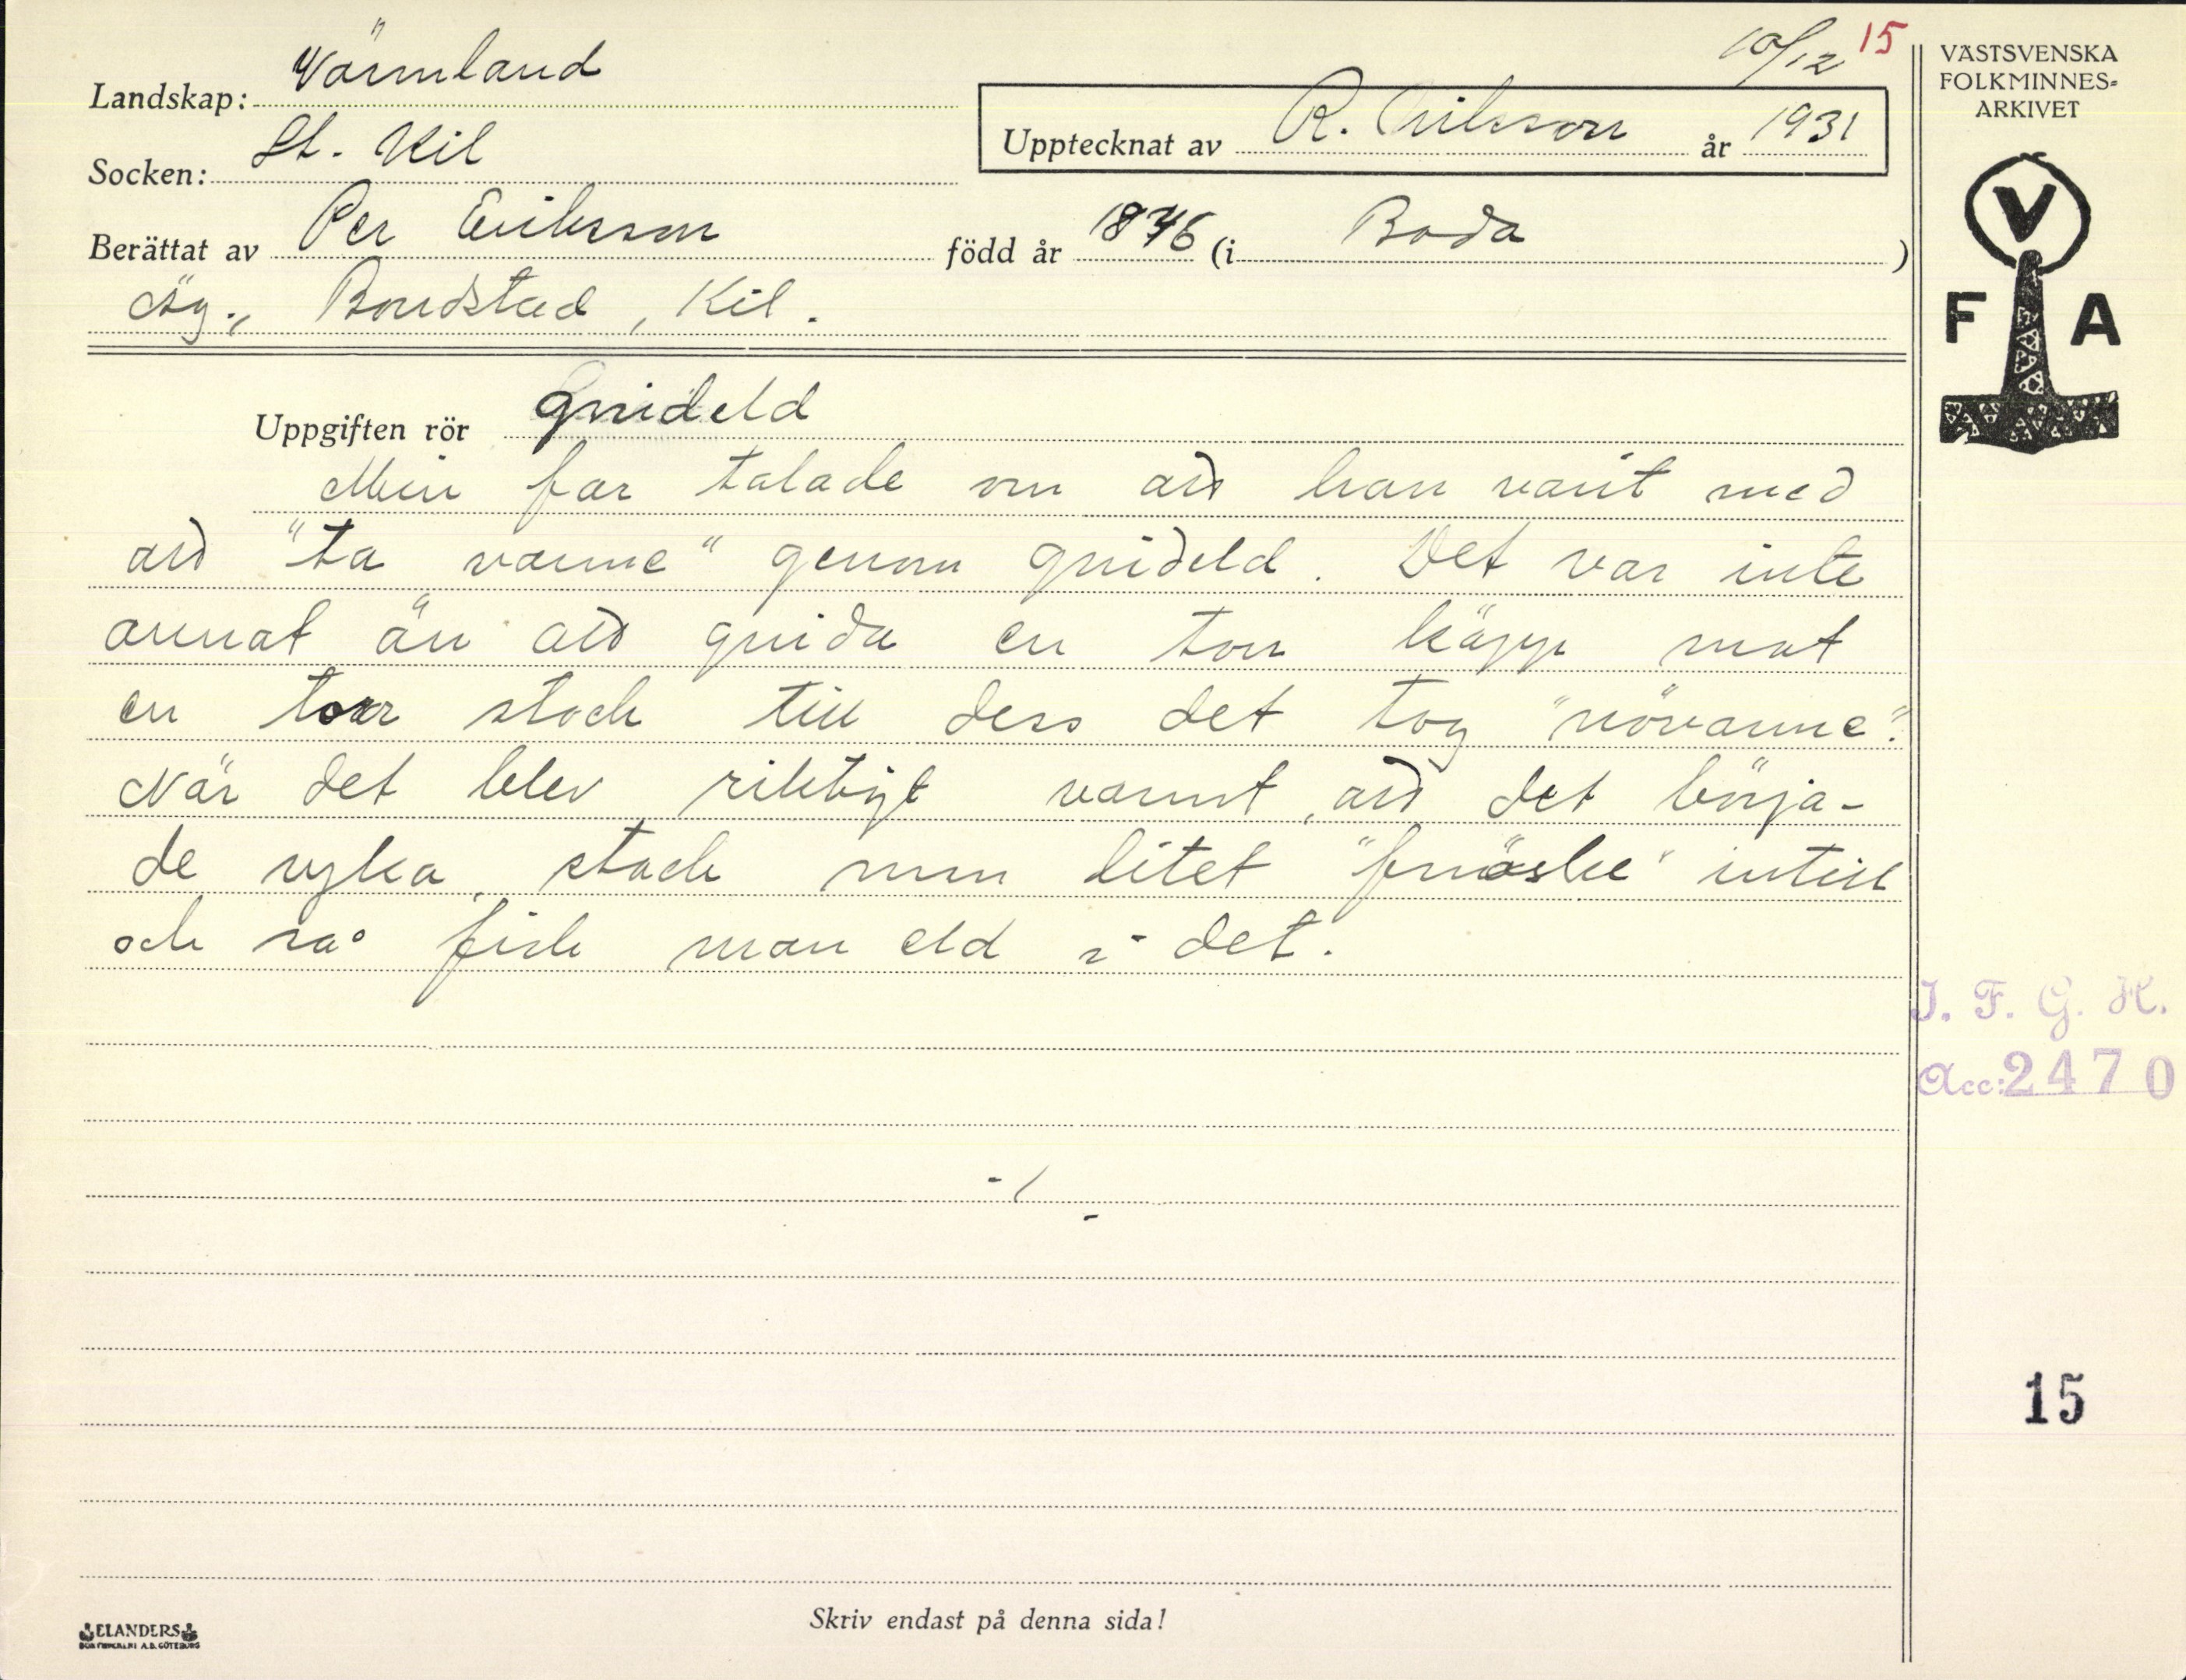 10/12 15
Landskap: Värmland
Socken: St. Kil
Upptecknat av R. Nilsson år 1931
Berättat av Per Eriksson född år 1846 (i Boda)
Äg., Bondstad, Kil.
Uppgiften rör Gnideld
Min far talade om att han varit med
att "ta varme" genom gnideld. Det var inte
annat än att gnida en torr käpp mot
en torr stock till dess det tog "növarme".
När det blev riktigt varmt, att det börja-
de ryka, stack man litet "fnöske" intill
och så fick man eld i det.
Skriv endast på denna sida!
ELANDERS
VÄSTSVENSKA
FOLKMINNES-
ARKIVET
V
F A
I. F. G. H.
Acc: 2470
15